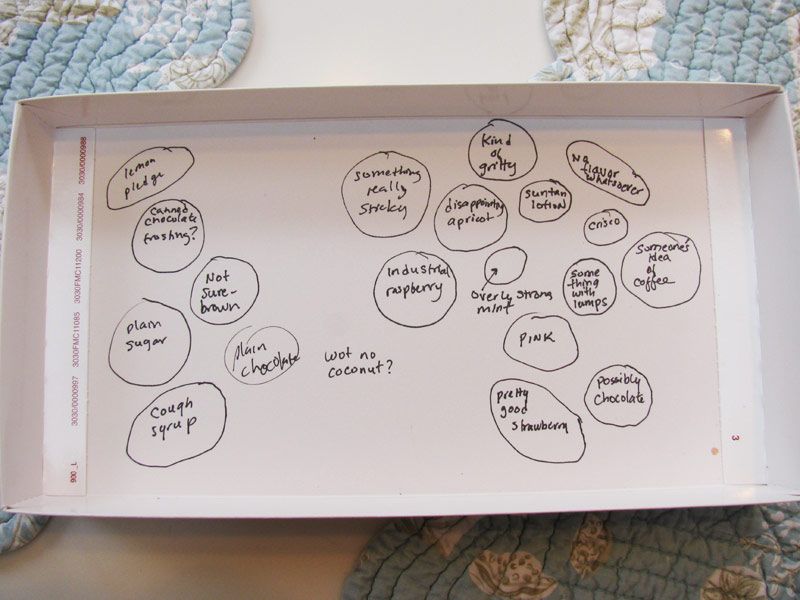 lemon
pledge
canned
chocolate
frosting?
Not
sure-
brown
plain
sugar
plain
chocolate
cough
syrup
wot no
coconut?
something
really
sticky
Kind
of
gritty
disappointing
apricot
suntan
lotion
No
flavor
whatsoever
crisco
Someone's
idea
of
coffee
Industrial
raspberry
overly strong
mint
some
thing
with
lumps
PINK
pretty
good
strawberry
Possibly
chocolate
900_L 3030/0000997 3030FMC11085 3030FMC11200 3030/0000984 3030/0000988
3